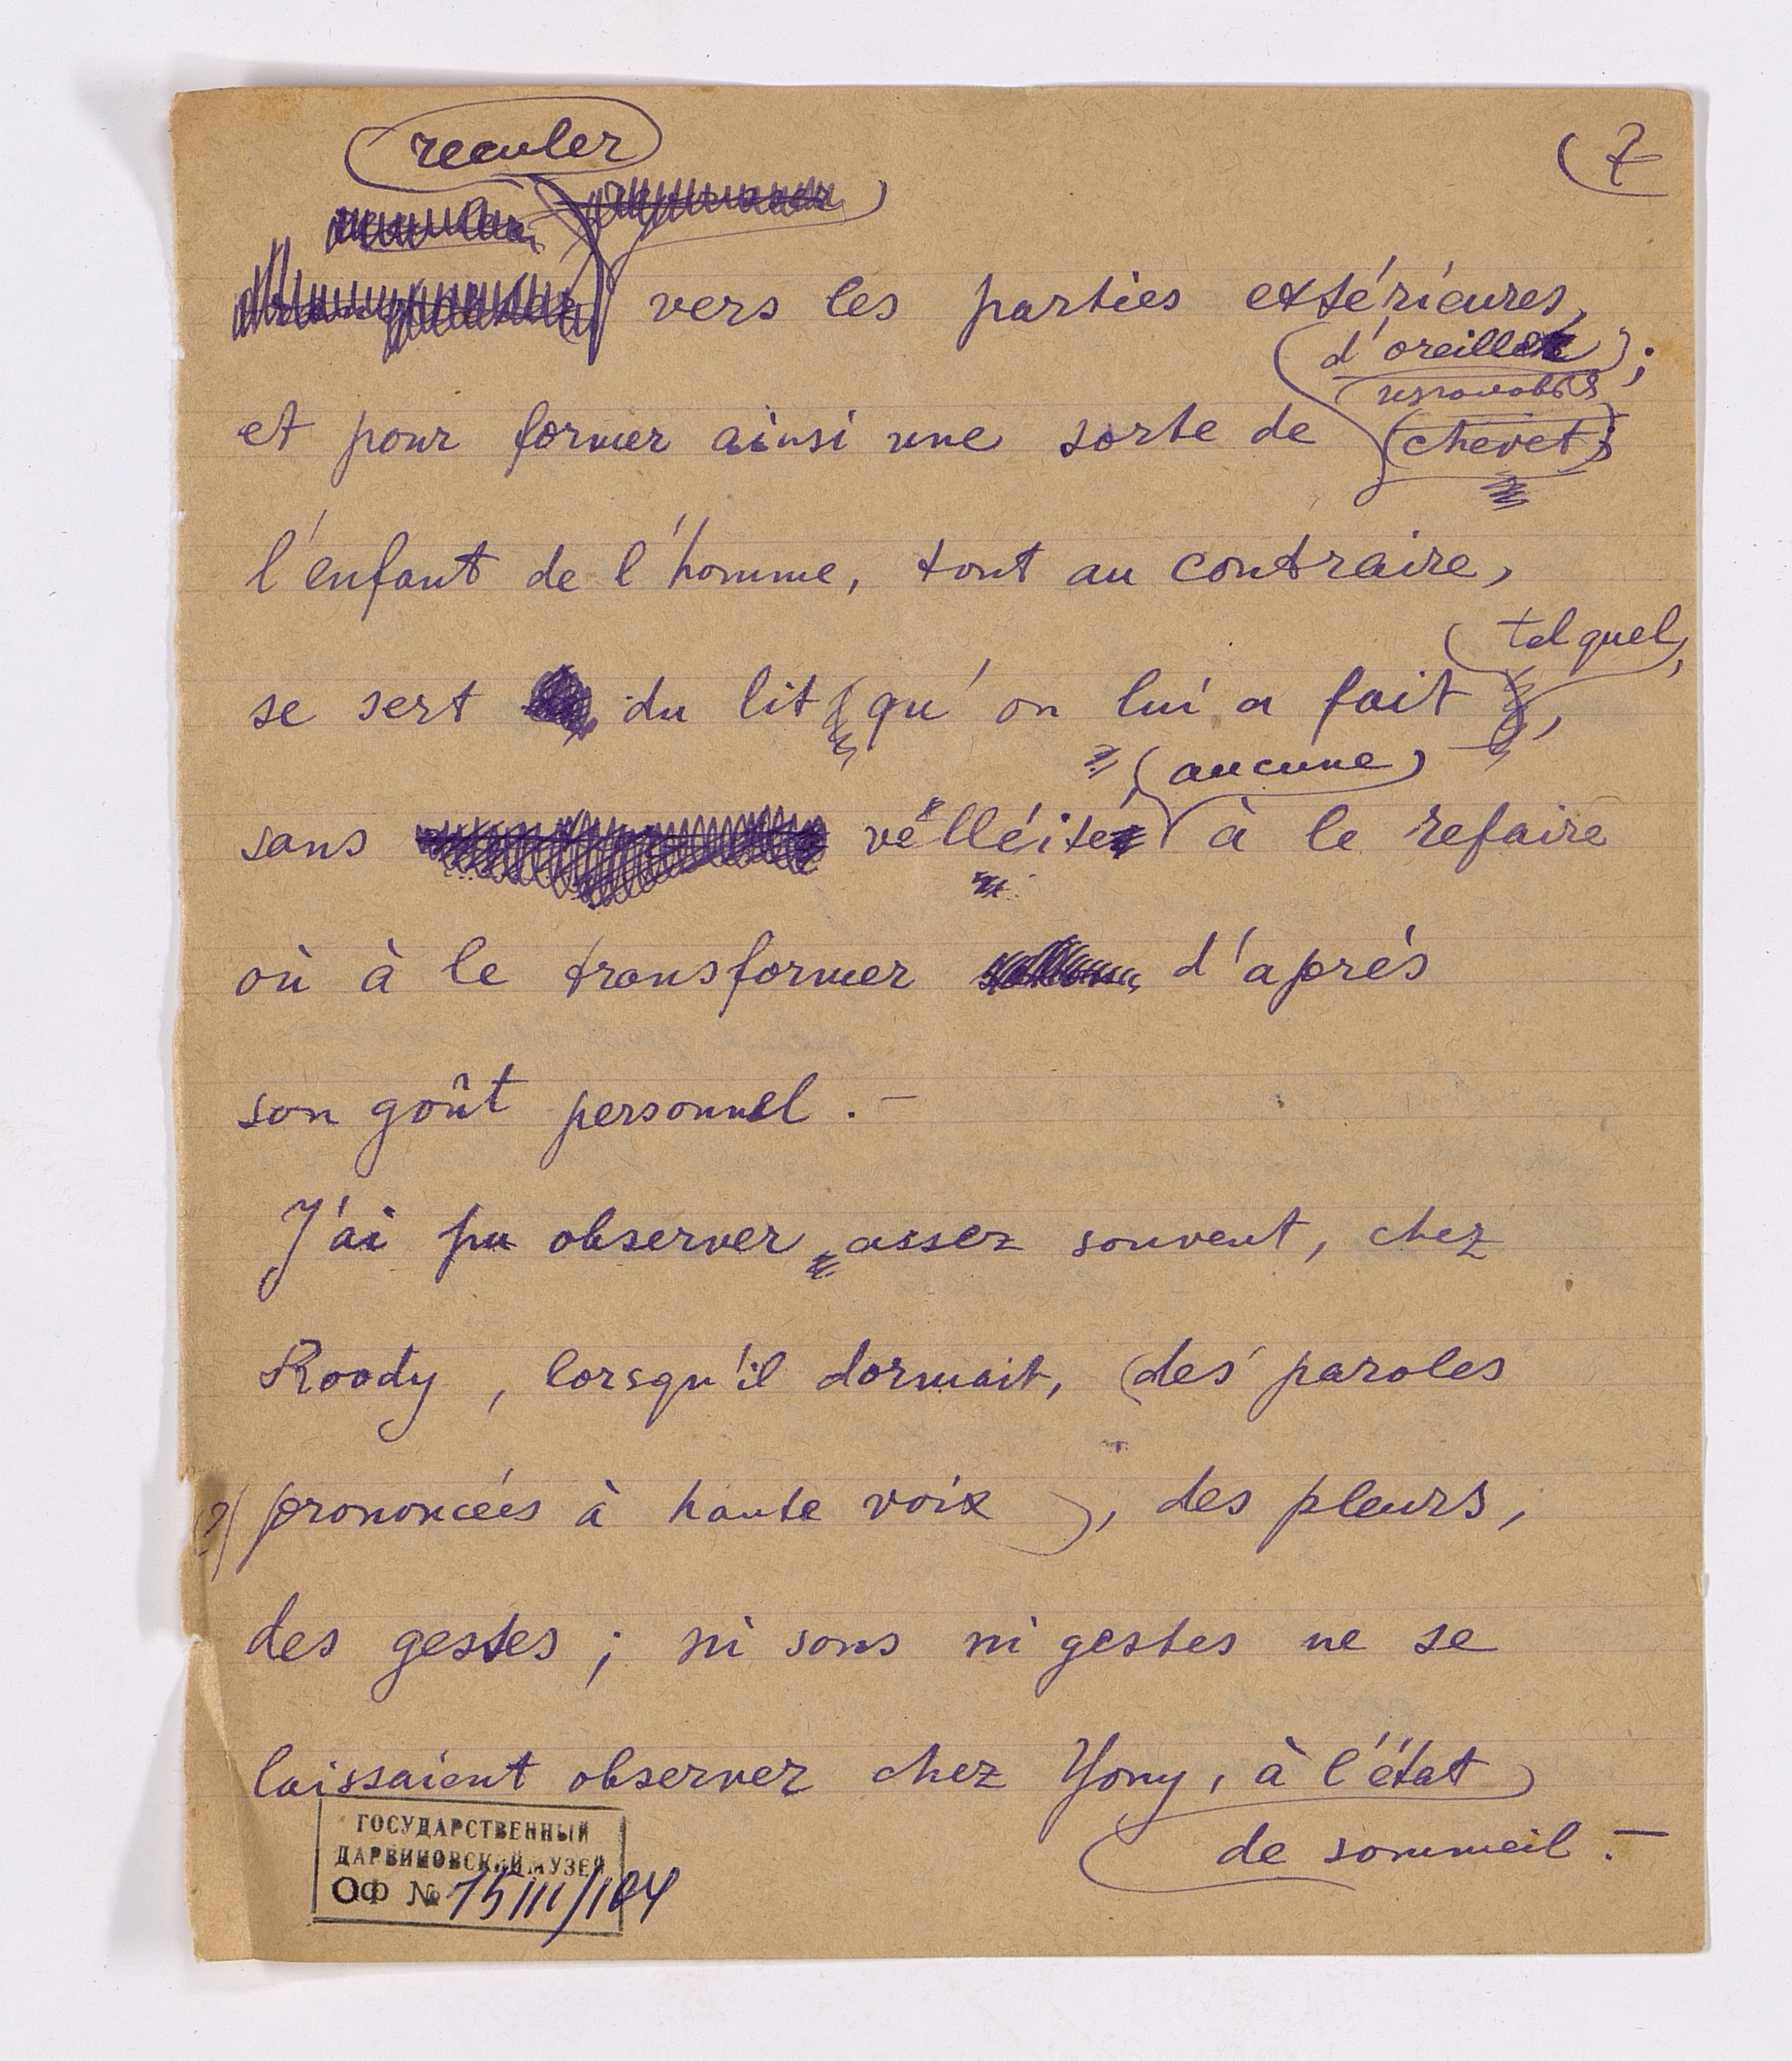 (7
reculer
vers les parties extérieures,
d'oreille ;
et pour former ainsi une sorte de chevet;
l'enfant de l'homme, tout au contraire,
tel quel,
se sert du lit qu'on lui a fait ,
aucune
sans vélléité à le refaire
où à le transformer d'aprés
son goût personnel . —
J'ai pu observer assez souvent, chez
Roody , lorsqu'il dormait, (des paroles
prononcées à haute voix ), des pleurs,
des gestes ; ni sons ni gestes ne se
laissaient observer chez Yony, à l'état
de sommeil . —
ГОСУДАРСТВЕННЫЙ
ДАРВИНОВСКИЙ МУЗЕЙ
ОФ № 15111/104